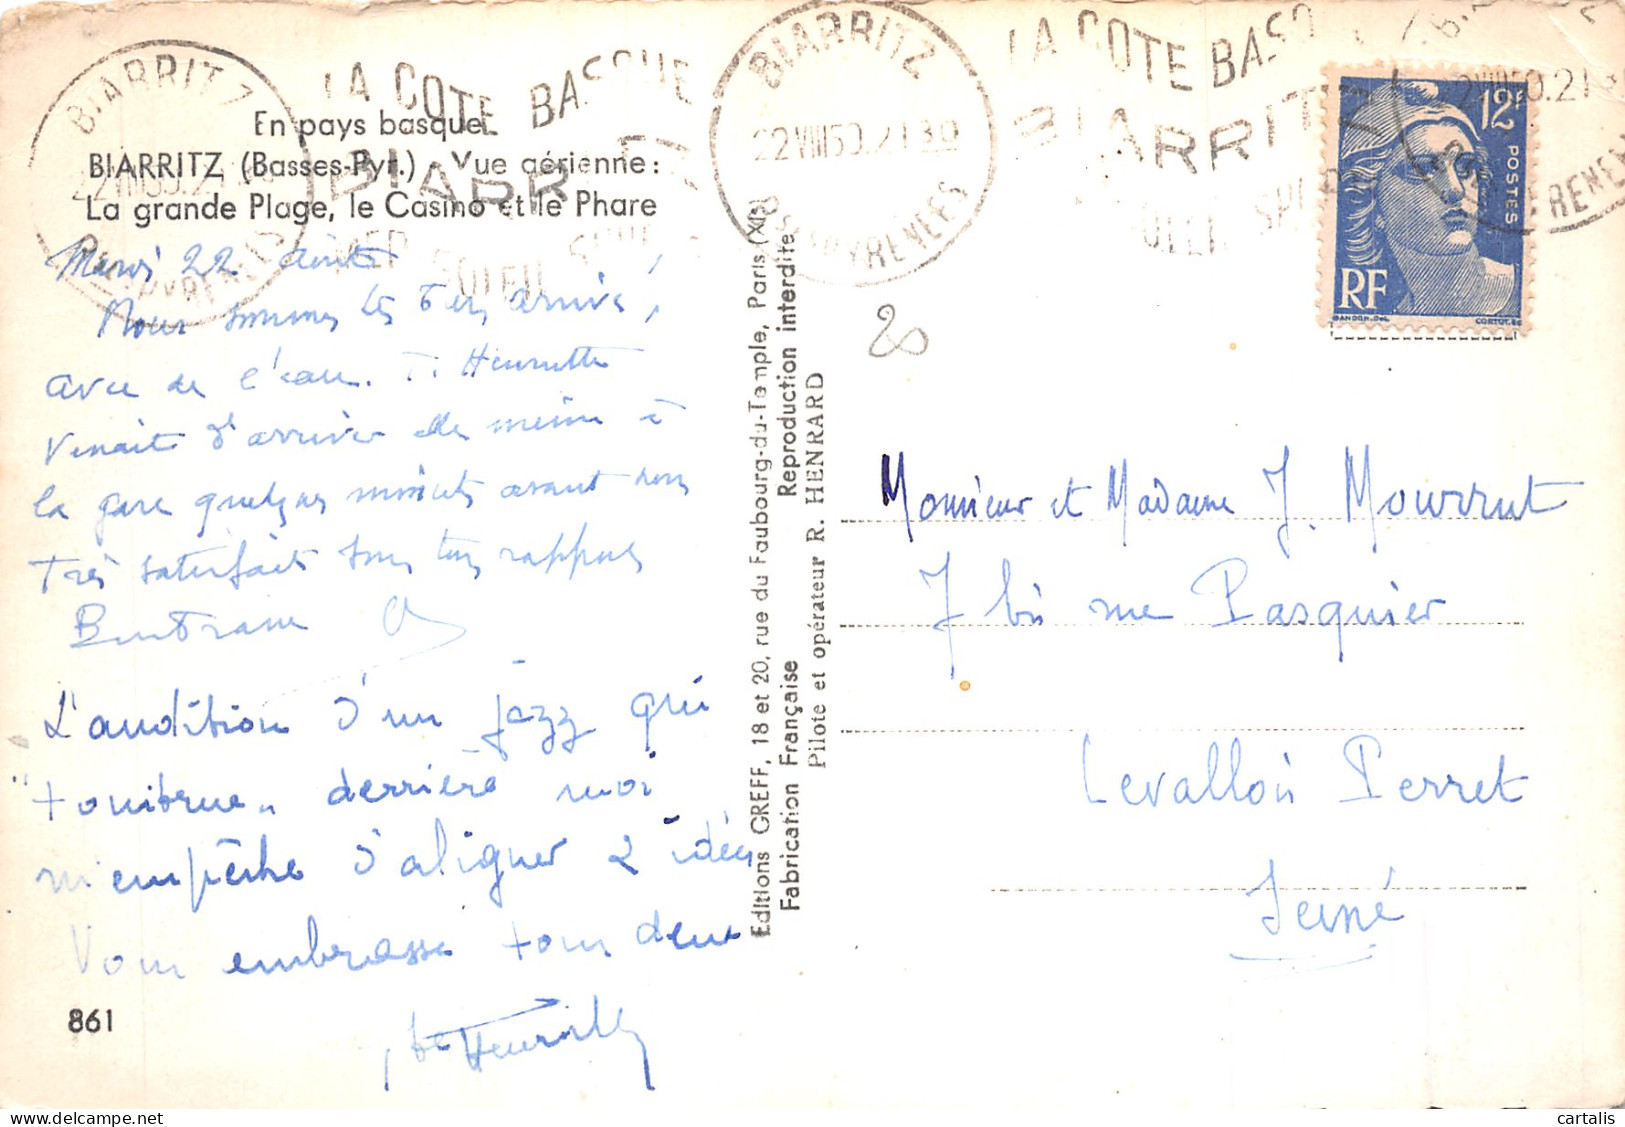 BIARRITZ
LA COTE BASQUE
BIARRITZ
22 VIII 50. 21 30
Bses PYRENEES
LA COTE BASQ
BIARRITZ
SOLEIL
12F
POSTES
RF
GANDON.DEL.
CORTOT.SC
En pays basque
BIARRITZ (Basses-Pyr.) Vue aérienne:
La grande Plage, le Casino et le Phare
Mardi 22 Août
Nous sommes très bien arrivé,
avec de l'eau. T. Henriette
venait d'arriver elle même à
la gare quelques minutes avant nous
Très satisfait sous tous rapports
L'audition d'un jazz qui
tonitrue derrière moi
m'empêche d'aligner 2 idées
Vous embrasse tous deux
Henriette
861
Editions GREFF, 18 et 20, rue du Faubourg-du-Temple, Paris (XIe)
Fabrication Française Reproduction interdite
Pilote et opérateur R. HENRARD
20
Monsieur et Madame J. Mourrut
7 bis rue Pasquier
Levallois Perret
Seine
cartalis